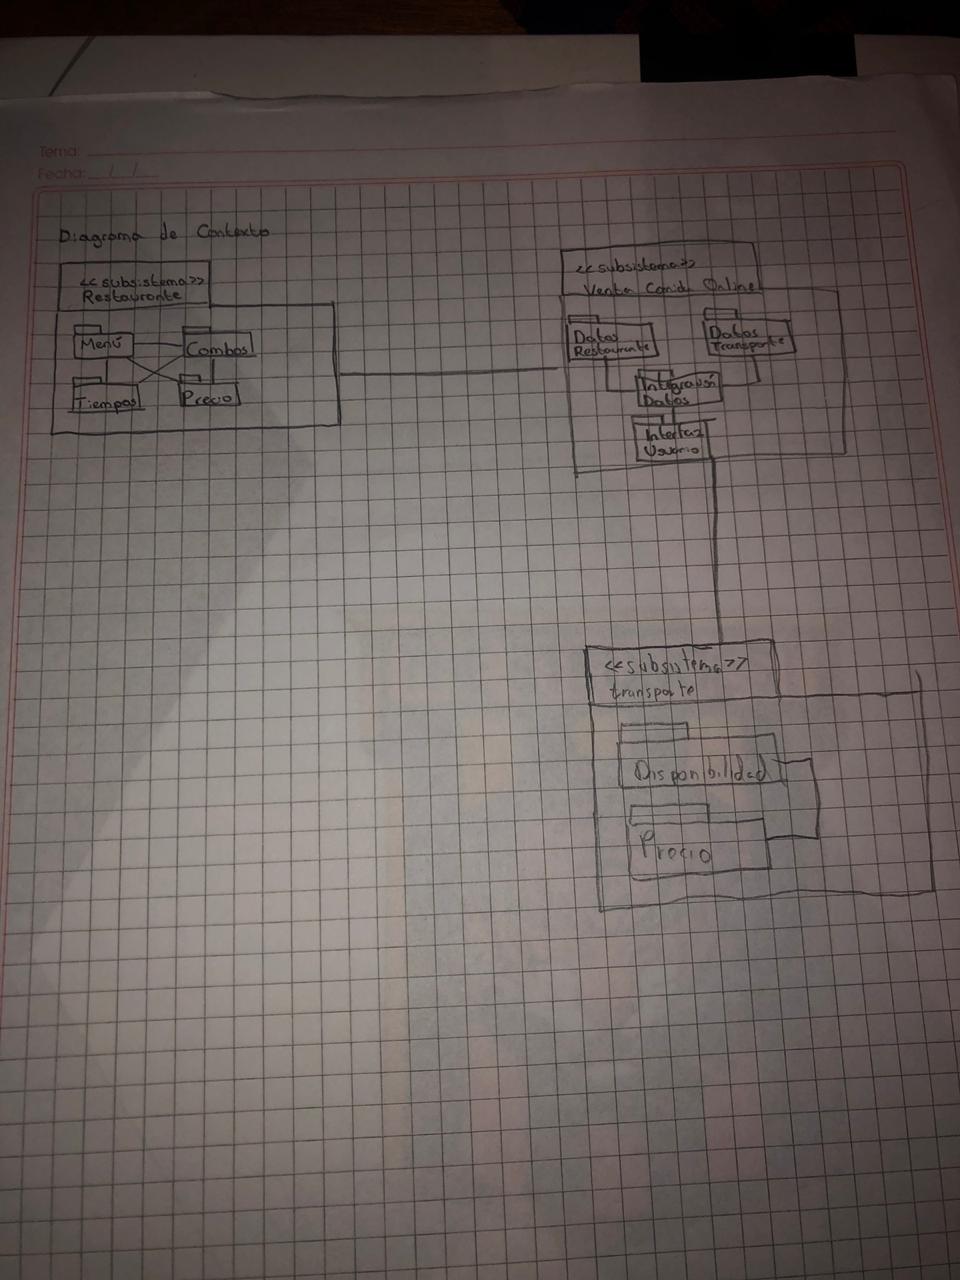 Tema:
Fecha: / /
Diagrama de Contexto
<<subsistema>>
Restaurante
Menú
Combos
Tiempos
Precio
<<subsistema>>
Venta Comida Online
Datos
Restaurante
Datos
Transporte
Integración
Datos
Interfaz
Usuario
<<subsistema>>
transporte
Disponibilidad
Precio